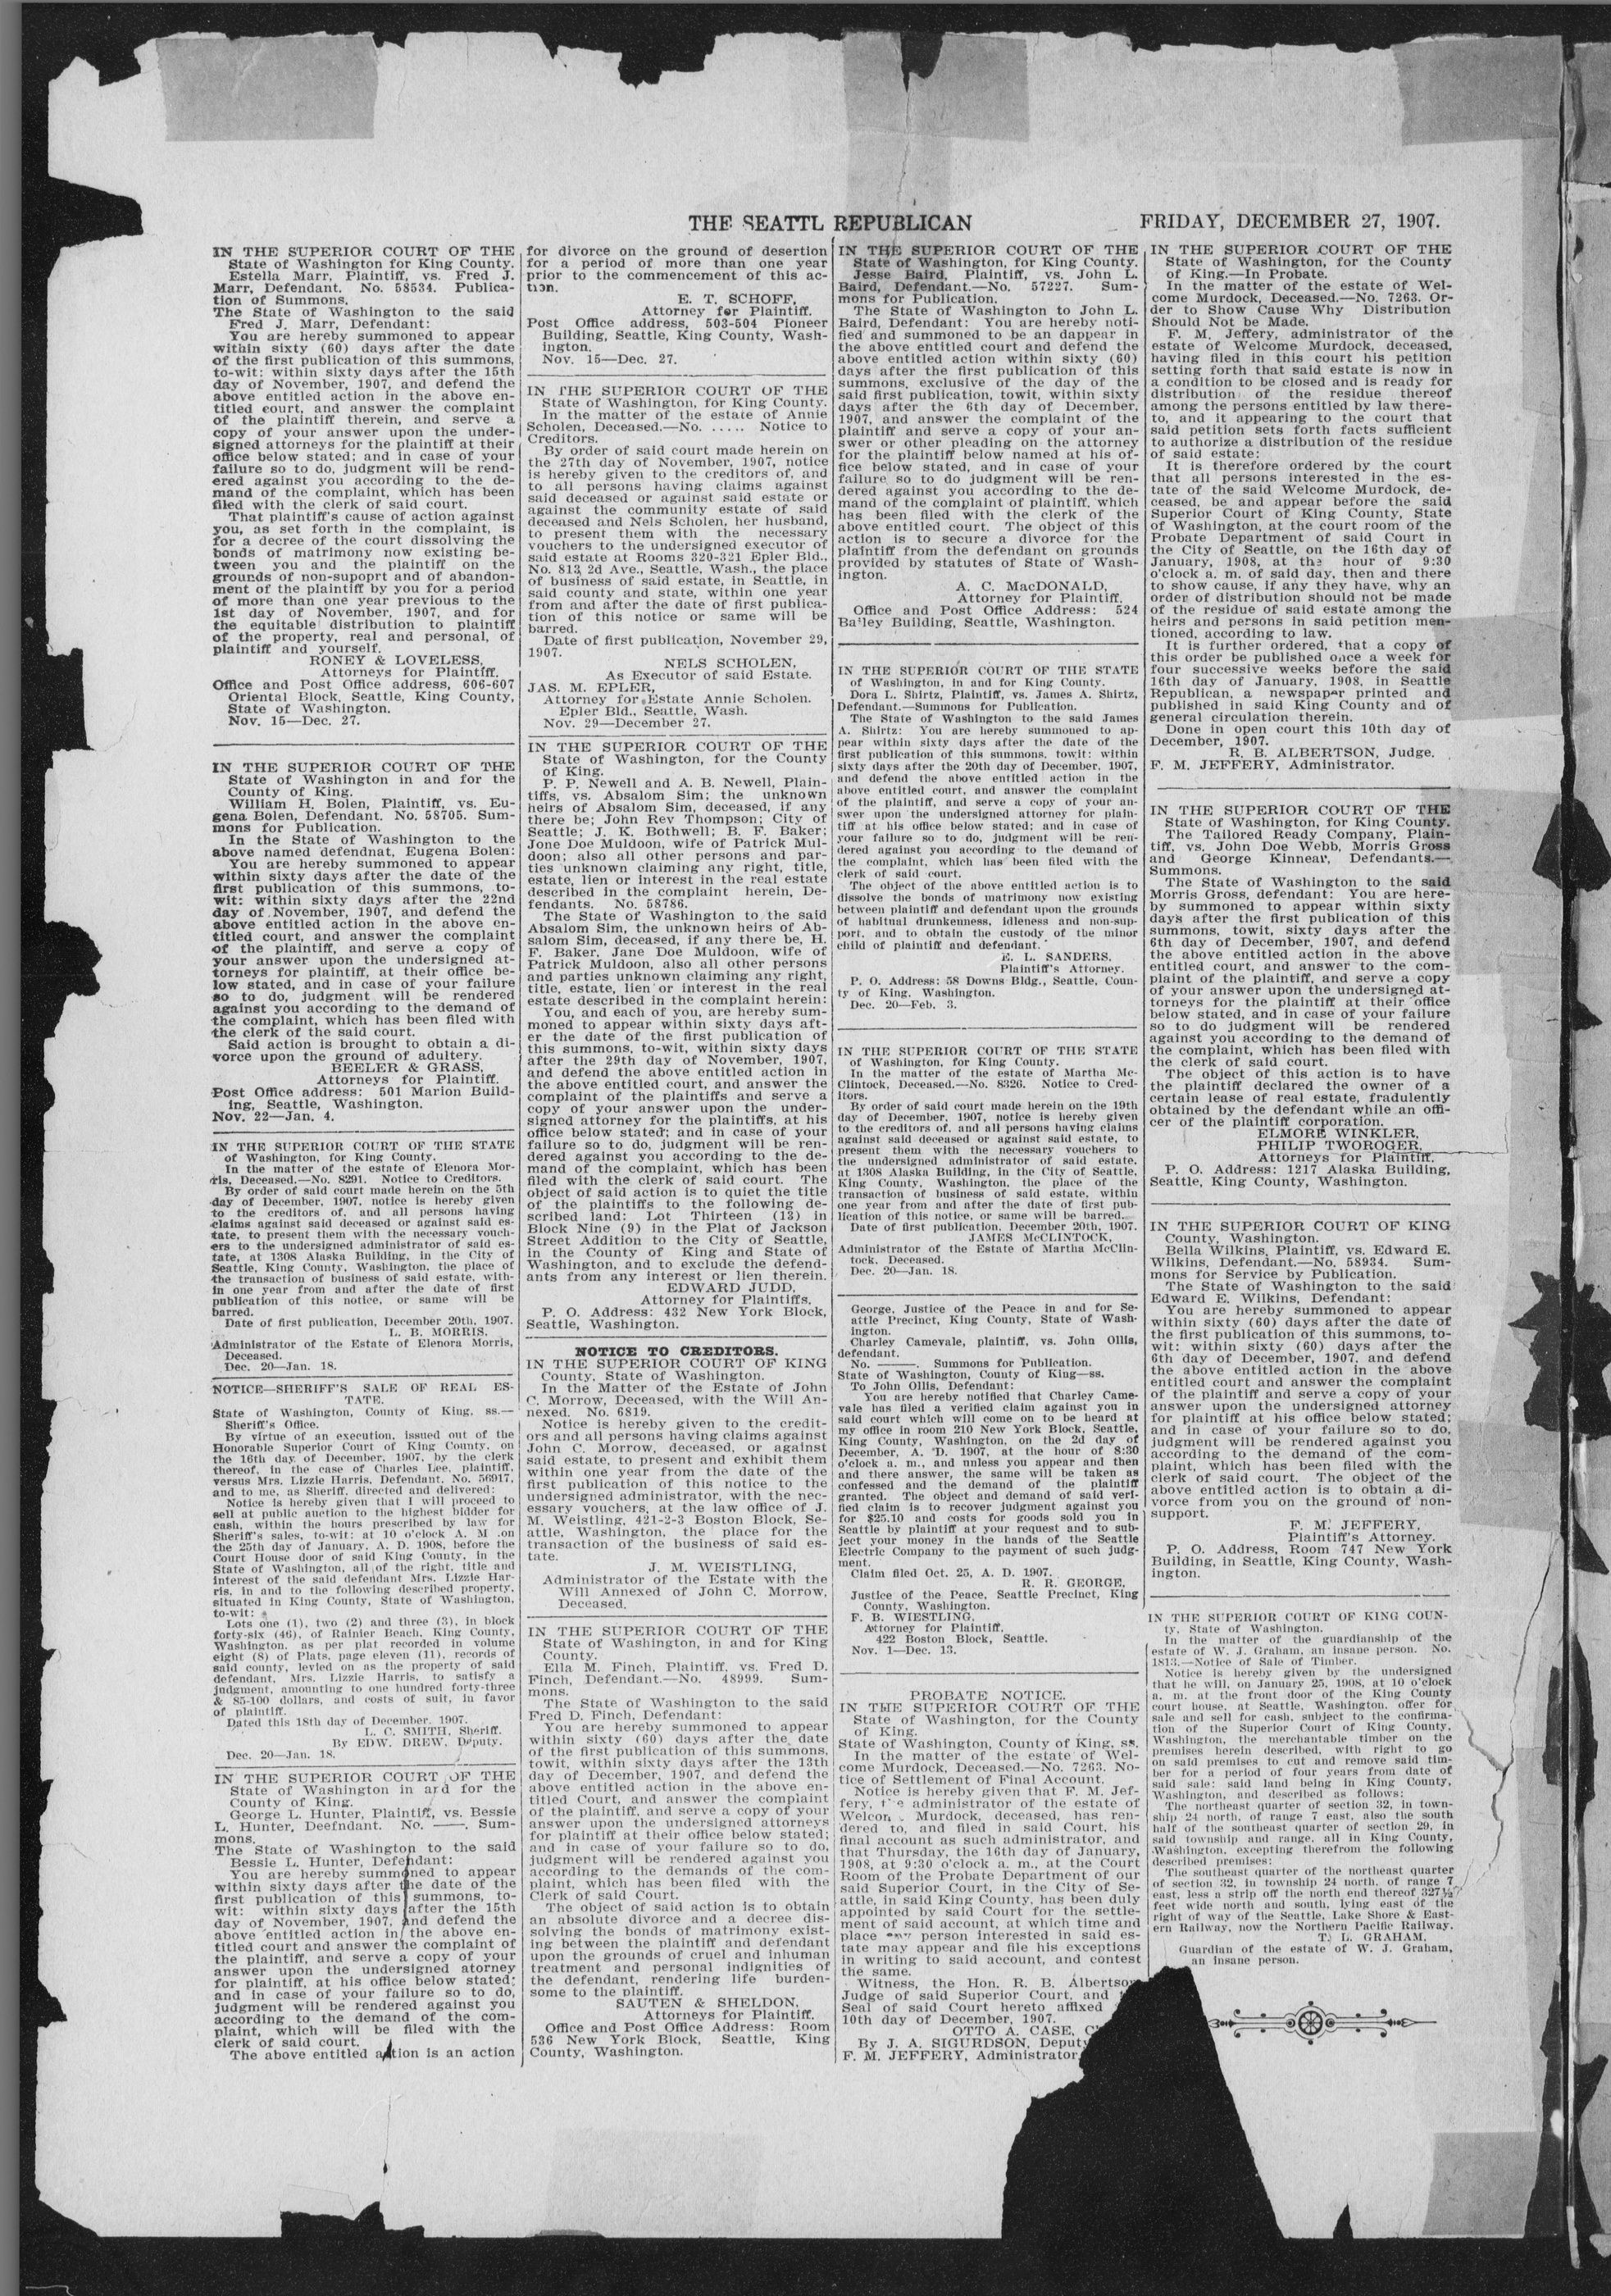 THE SEATTL REPUBLICAN
FRIDAY, DECEMBER 27, 1907.
IN THE SUPERIOR COURT OF THE
State of Washington for King County.
Estella Marr, Plaintiff, vs. Fred J.
Marr, Defendant. No. 58534. Publica-
tion of Summons.
The State of Washington to the said
Fred J. Marr, Defendant:
You are hereby summoned to appear
within sixty (60) days after the date
of the first publication of this summons,
to-wit: within sixty days after the 15th
day of November, 1907, and defend the
above entitled action in the above en-
titled court, and answer the complaint
of the plaintiff therein, and serve a
copy of your answer upon the under-
signed attorneys for the plaintiff at their
office below stated; and in case of your
failure so to do, judgment will be rend-
ered against you according to the de-
mand of the complaint, which has been
filed with the clerk of said court.
That plaintiff's cause of action against
you, as set forth in the complaint, is
for a decree of the court dissolving the
bonds of matrimony now existing be-
tween you and the plaintiff on the
grounds of non-supoprt and of abandon-
ment of the plaintiff by you for a period
of more than one year previous to the
1st day of November, 1907, and for
the equitable distribution to plaintiff
of the property, real and personal, of
plaintiff and yourself.
RONEY & LOVELESS,
Attorneys for Plaintiff.
Office and Post Office address, 606-607
Oriental Block, Seattle, King County,
State of Washington.
Nov. 15—Dec. 27.
IN THE SUPERIOR COURT OF THE
State of Washington in and for the
County of King.
William H. Bolen, Plaintiff, vs. Eu-
gena Bolen, Defendant. No. 58705. Sum-
mons for Publication.
In the State of Washington to the
above named defendnat, Eugena Bolen:
You are hereby summoned to appear
within sixty days after the date of the
first publication of this summons, to-
wit: within sixty days after the 22nd
day of November, 1907, and defend the
above entitled action in the above en-
titled court, and answer the complaint
of the plaintiff, and serve a copy of
your answer upon the undersigned at-
torneys for plaintiff, at their office be-
low stated, and in case of your failure
so to do, judgment will be rendered
against you according to the demand of
the complaint, which has been filed with
the clerk of the said court.
Said action is brought to obtain a di-
vorce upon the ground of adultery.
BEELER & GRASS,
Attorneys for Plaintiff.
Post Office address: 501 Marion Build-
ing, Seattle, Washington.
Nov. 22—Jan. 4.
IN THE SUPERIOR COURT OF THE STATE
of Washington, for King County.
In the matter of the estate of Elenora Mor-
ris, Deceased.—No. 8291. Notice to Creditors.
By order of said court made herein on the 5th
day of December, 1907, notice is hereby given
to the creditors of, and all persons having
claims against said deceased or against said es-
tate, to present them with the necessary vouch-
ers to the undersigned administrator of said es-
tate, at 1308 Alaska Building, in the City of
Seattle, King County, Washington, the place of
the transaction of business of said estate, with-
in one year from and after the date of first
publication of this notice, or same will be
barred.
Date of first publication, December 20th, 1907.
L. B. MORRIS,
Administrator of the Estate of Elenora Morris,
Deceased.
Dec. 20—Jan. 18.
NOTICE—SHERIFF'S SALE OF REAL ES-
TATE.
State of Washington, County of King, ss.—
Sheriff's Office.
By virtue of an execution, issued out of the
Honorable Superior Court of King County, on
the 16th day of December, 1907, by the clerk
thereof, in the case of Charles Lee, plaintiff,
versus Mrs. Lizzie Harris, Defendant, No. 56917,
and to me, as Sheriff, directed and delivered:
Notice is hereby given that I will proceed to
sell at public auction to the highest bidder for
cash, within the hours prescribed by law for
Sheriff's sales, to-wit: at 10 o'clock A. M .on
the 25th day of January, A. D. 1908, before the
Court House door of said King County, in the
State of Washington, all of the right, title and
interest of the said defendant Mrs. Lizzie Har-
ris, in and to the following described property,
situated in King County, State of Washington,
to-wit:
Lots one (1), two (2) and three (3), in block
forty-six (46), of Rainier Beach, King County,
Washington, as per plat recorded in volume
eight (8) of Plats, page eleven (11), records of
said county, levied on as the property of said
defendant, Mrs. Lizzie Harris, to satisfy a
judgment, amounting to one hundred forty-three
& 85-100 dollars, and costs of suit, in favor
of plaintiff.
Dated this 18th day of December, 1907.
L. C. SMITH, Sheriff.
By EDW. DREW, Deputy.
Dec. 20—Jan. 18.
IN THE SUPERIOR COURT OF THE
State of Washington in ard for the
County of King.
George L. Hunter, Plaintiff, vs. Bessie
L. Hunter, Deefndant. No. ——. Sum-
mons.
The State of Washington to the said
Bessie L. Hunter, Defendant:
You are hereby summoned to appear
within sixty days after the date of the
first publication of this summons, to-
wit: within sixty days after the 15th
day of November, 1907, and defend the
above entitled action in the above en-
titled court and answer the complaint of
the plaintiff, and serve a copy of your
answer upon the undersigned atorney
for plaintiff, at his office below stated;
and in case of your failure so to do,
judgment will be rendered against you
according to the demand of the com-
plaint, which will be filed with the
clerk of said court.
The above entitled action is an action
for divorce on the ground of desertion
for a period of more than one year
prior to the commencement of this ac-
tion.
E. T. SCHOFF,
Attorney for Plaintiff.
Post Office address, 503-504 Pioneer
Building, Seattle, King County, Wash-
ington.
Nov. 15—Dec. 27.
IN THE SUPERIOR COURT OF THE
State of Washington, for King County.
In the matter of the estate of Annie
Scholen, Deceased.—No. ..... Notice to
Creditors.
By order of said court made herein on
the 27th day of November, 1907, notice
is hereby given to the creditors of, and
to all persons having claims against
said deceased or against said estate or
against the community estate of said
deceased and Nels Scholen, her husband,
to present them with the necessary
vouchers to the undersigned executor of
said estate at Rooms 320-321 Epler Bld.,
No. 813, 2d Ave., Seattle, Wash., the place
of business of said estate, in Seattle, in
said county and state, within one year
from and after the date of first publica-
tion of this notice or same will be
barred.
Date of first publication, November 29,
1907.
NELS SCHOLEN,
As Executor of said Estate.
JAS. M. EPLER,
Attorney for Estate Annie Scholen.
Epler Bld., Seattle, Wash.
Nov. 29—December 27.
IN THE SUPERIOR COURT OF THE
State of Washington, for the County
of King.
P. P. Newell and A. B. Newell, Plain-
tiffs, vs. Absalom Sim; the unknown
heirs of Absalom Sim, deceased, if any
there be; John Rev Thompson; City of
Seattle; J. K. Bothwell; B. F. Baker;
Jone Doe Muldoon, wife of Patrick Mul-
doon; also all other persons and par-
ties unknown claiming any right, title,
estate, lien or interest in the real estate
described in the complaint herein, De-
fendants. No. 58786.
The State of Washington to the said
Absalom Sim, the unknown heirs of Ab-
salom Sim, deceased, if any there be, H.
F. Baker, Jane Doe Muldoon, wife of
Patrick Muldoon, also all other persons
and parties unknown claiming any right,
title, estate, lien or interest in the real
estate described in the complaint herein:
You, and each of you, are hereby sum-
moned to appear within sixty days aft-
er the date of the first publication of
this summons, to-wit, within sixty days
after the 29th day of November, 1907,
and defend the above entitled action in
the above entitled court, and answer the
complaint of the plaintiffs and serve a
copy of your answer upon the under-
signed attorney for the plaintiffs, at his
office below stated; and in case of your
failure so to do, judgment will be ren-
dered against you according to the de-
mand of the complaint, which has been
filed with the clerk of said court. The
object of said action is to quiet the title
of the plaintiffs to the following de-
scribed land: Lot Thirteen (13) in
Block Nine (9) in the Plat of Jackson
Street Addition to the City of Seattle,
in the County of King and State of
Washington, and to exclude the defend-
ants from any interest or lien therein.
EDWARD JUDD,
Attorney for Plaintiffs.
P. O. Address: 432 New York Block,
Seattle, Washington.
NOTICE TO CREDITORS.
IN THE SUPERIOR COURT OF KING
County, State of Washington.
In the Matter of the Estate of John
C. Morrow, Deceased, with the Will An-
nexed. No. 6819.
Notice is hereby given to the credit-
ors and all persons having claims against
John C. Morrow, deceased, or against
said estate, to present and exhibit them
within one year from the date of the
first publication of this notice to the
undersigned administrator, with the nec-
essary vouchers, at the law office of J.
M. Weistling, 421-2-3 Boston Block, Se-
attle, Washington, the place for the
transaction of the business of said es-
tate.
J. M. WEISTLING,
Administrator of the Estate with the
Will Annexed of John C. Morrow,
Deceased.
IN THE SUPERIOR COURT OF THE
State of Washington, in and for King
County.
Ella M. Finch, Plaintiff, vs. Fred D.
Finch, Defendant.—No. 48999. Sum-
mons.
The State of Washington to the said
Fred D. Finch, Defendant:
You are hereby summoned to appear
within sixty (60) days after the date
of the first publication of this summons,
towit, within sixty days after the 13th
day of December, 1907, and defend the
above entitled action in the above en-
titled Court, and answer the complaint
of the plaintiff, and serve a copy of your
answer upon the undersigned attorneys
for plaintiff at their office below stated;
and in case of your failure so to do,
judgment will be rendered against you
according to the demands of the com-
plaint, which has been filed with the
Clerk of said Court.
The object of said action is to obtain
an absolute divorce and a decree dis-
solving the bonds of matrimony exist-
ing between the plaintiff and defendant
upon the grounds of cruel and inhuman
treatment and personal indignities of
the defendant, rendering life burden-
some to the plaintiff.
SAUTEN & SHELDON,
Attorneys for Plaintiff.
Office and Post Office Address: Room
536 New York Block, Seattle, King
County, Washington.
IN THE SUPERIOR COURT OF THE
State of Washington, for King County.
Jesse Baird, Plaintiff, vs. John L.
Baird, Defendant.—No. 57227. Sum-
mons for Publication.
The State of Washington to John L.
Baird, Defendant: You are hereby noti-
fied and summoned to be an dappear in
the above entitled court and defend the
above entitled action within sixty (60)
days after the first publication of this
summons, exclusive of the day of the
said first publication, towit, within sixty
days after the 6th day of December,
1907, and answer the complaint of the
plaintiff and serve a copy of your an-
swer or other pleading on the attorney
for the plaintiff below named at his of-
fice below stated, and in case of your
failure so to do judgment will be ren-
dered against you according to the de-
mand of the complaint of plaintiff, which
has been filed with the clerk of the
above entitled court. The object of this
action is to secure a divorce for the
plaintiff from the defendant on grounds
provided by statutes of State of Wash-
ington.
A. C. MacDONALD,
Attorney for Plaintiff.
Office and Post Office Address: 524
Bailey Building, Seattle, Washington.
IN THE SUPERIOR COURT OF THE STATE
of Washington, in and for King County.
Dora L. Shirtz, Plaintiff, vs. James A. Shirtz,
Defendant.—Summons for Publication.
The State of Washington to the said James
A. Shirtz: You are hereby summoned to ap-
pear within sixty days after the date of the
first publication of this summons, towit: within
sixty days after the 20th day of December, 1907,
and defend the above entitled action in the
above entitled court, and answer the complaint
of the plaintiff, and serve a copy of your an-
swer upon the undersigned attorney for plain-
tiff at his office below stated; and in case of
your failure so to do, judgment will be ren-
dered against you according to the demand of
the complaint, which has been filed with the
clerk of said court.
The object of the above entitled action is to
dissolve the bonds of matrimony now existing
between plaintiff and defendant upon the grounds
of habitual drunkenness, idleness and non-sup-
port, and to obtain the custody of the minor
child of plaintiff and defendant.
E. L. SANDERS,
Plaintiff's Attorney.
P. O. Address: 58 Downs Bldg., Seattle, Coun-
ty of King, Washington.
Dec. 20—Feb. 3.
IN THE SUPERIOR COURT OF THE STATE
of Washington, for King County.
In the matter of the estate of Martha Mc-
Clintock, Deceased.—No. 8326. Notice to Cred-
itors.
By order of said court made herein on the 19th
day of December, 1907, notice is hereby given
to the creditors of, and all persons having claims
against said deceased or against said estate, to
present them with the necessary vouchers to
the undersigned administrator of said estate,
at 1308 Alaska Building, in the City of Seattle,
King County, Washington, the place of the
transaction of business of said estate, within
one year from and after the date of first pub-
lication of this notice, or same will be barred.
Date of first publication, December 20th, 1907.
JAMES McCLINTOCK,
Administrator of the Estate of Martha McClin-
tock, Deceased.
Dec. 20—Jan. 18.
George, Justice of the Peace in and for Se-
attle Precinct, King County, State of Wash-
ington.
Charley Camevale, plaintiff, vs. John Ollis,
defendant.
No. ——. Summons for Publication.
State of Washington, County of King—ss.
To John Ollis, Defendant:
You are hereby notified that Charley Came-
vale has filed a verified claim against you in
said court which will come on to be heard at
my office in room 210 New York Block, Seattle,
King County, Washington, on the 2d day of
December, A. D. 1907, at the hour of 8:30
o'clock a. m., and unless you appear and then
and there answer, the same will be taken as
confessed and the demand of the plaintiff
granted. The object and demand of said veri-
fied claim is to recover judgment against you
for $25.10 and costs for goods sold you in
Seattle by plaintiff at your request and to sub-
ject your money in the hands of the Seattle
Electric Company to the payment of such judg-
ment.
Claim filed Oct. 25, A. D. 1907.
R. R. GEORGE,
Justice of the Peace, Seattle Precinct, King
County, Washington.
F. B. WIESTLING,
Attorney for Plaintiff,
422 Boston Block, Seattle.
Nov. 1—Dec. 13.
PROBATE NOTICE.
IN THE SUPERIOR COURT OF THE
State of Washington, for the County
of King.
State of Washington, County of King, ss.
In the matter of the estate of Wel-
come Murdock, Deceased.—No. 7263. No-
tice of Settlement of Final Account.
Notice is hereby given that F. M. Jef-
fery, administrator of the estate of
Murdock, deceased, has ren-
dered to, and filed in said Court, his
final account as such administrator, and
that Thursday, the 16th day of January,
1908, at 9:30 o'clock a. m., at the Court
Room of the Probate Department of our
said Superior Court, in the City of Se-
attle, in said King County, has been duly
appointed by said Court for the settle-
ment of said account, at which time and
place person interested in said es-
tate may appear and file his exceptions
in writing to said account, and contest
the same.
Witness, the Hon. R. B. Albertson
Judge of said Superior Court, and
Seal of said Court hereto affixed
10th day of December, 1907.
OTTO A. CASE,
By J. A. SIGURDSON, Deputy
F. M. JEFFERY, Administrator
IN THE SUPERIOR COURT OF THE
State of Washington, for the County
of King.—In Probate.
In the matter of the estate of Wel-
come Murdock, Deceased.—No. 7263. Or-
der to Show Cause Why Distribution
Should Not be Made.
F. M. Jeffery, administrator of the
estate of Welcome Murdock, deceased,
having filed in this court his petition
setting forth that said estate is now in
a condition to be closed and is ready for
distribution of the residue thereof
among the persons entitled by law there-
to, and it appearing to the court that
said petition sets forth facts sufficient
to authorize a distribution of the residue
of said estate:
It is therefore ordered by the court
that all persons interested in the es-
tate of the said Welcome Murdock, de-
ceased, be and appear before the said
Superior Court of King County, State
of Washington, at the court room of the
Probate Department of said Court in
the City of Seattle, on the 16th day of
January, 1908, at the hour of 9:30
o'clock a. m. of said day, then and there
to show cause, if any they have, why an
order of distribution should not be made
of the residue of said estate among the
heirs and persons in said petition men-
tioned, according to law.
It is further ordered, that a copy of
this order be published once a week for
four successive weeks before the said
16th day of January, 1908, in Seattle
Republican, a newspaper printed and
published in said King County and of
general circulation therein.
Done in open court this 10th day of
December, 1907.
R. B. ALBERTSON, Judge.
F. M. JEFFERY, Administrator.
IN THE SUPERIOR COURT OF THE
State of Washington, for King County.
The Tailored Ready Company, Plain-
tiff, vs. John Doe Webb, Morris Gross
and George Kinnear, Defendants.—
Summons.
The State of Washington to the said
Morris Gross, defendant: You are here-
by summoned to appear within sixty
days after the first publication of this
summons, towit, sixty days after the
6th day of December, 1907, and defend
the above entitled action in the above
entitled court, and answer to the com-
plaint of the plaintiff, and serve a copy
of your answer upon the undersigned at-
torneys for the plaintiff at their office
below stated, and in case of your failure
so to do judgment will be rendered
against you according to the demand of
the complaint, which has been filed with
the clerk of said court.
The object of this action is to have
the plaintiff declared the owner of a
certain lease of real estate, fradulently
obtained by the defendant while an offi-
cer of the plaintiff corporation.
ELMORE WINKLER,
PHILIP TWOROGER,
Attorneys for Plaintiff.
P. O. Address: 1217 Alaska Building,
Seattle, King County, Washington.
IN THE SUPERIOR COURT OF KING
County, Washington.
Bella Wilkins, Plaintiff, vs. Edward E.
Wilkins, Defendant.—No. 58934. Sum-
mons for Service by Publication.
The State of Washington to the said
Edward E. Wilkins, Defendant:
You are hereby summoned to appear
within sixty (60) days after the date of
the first publication of this summons, to-
wit: within sixty (60) days after the
6th day of December, 1907, and defend
the above entitled action in the above
entitled court and answer the complaint
of the plaintiff and serve a copy of your
answer upon the undersigned attorney
for plaintiff at his office below stated;
and in case of your failure so to do,
judgment will be rendered against you
according to the demand of the com-
plaint, which has been filed with the
clerk of said court. The object of the
above entitled action is to obtain a di-
vorce from you on the ground of non-
support.
F. M. JEFFERY,
Plaintiff's Attorney.
P. O. Address, Room 747 New York
Building, in Seattle, King County, Wash-
ington.
IN THE SUPERIOR COURT OF KING COUN-
ty, State of Washington.
In the matter of the guardianship of the
estate of W. J. Graham, an insane person. No.
1813.—Notice of Sale of Timber.
Notice is hereby given by the undersigned
that he will, on January 25, 1908, at 10 o'clock
a. m. at the front door of the King County
court house, at Seattle, Washington, offer for
sale and sell for cash, subject to the confirma-
tion of the Superior Court of King County,
Washington, the merchantable timber on the
premises herein described, with right to go
on said premises to cut and remove said tim-
ber for a period of four years from date of
said sale; said land being in King County,
Washington, and described as follows:
The northeast quarter of section 32, in town-
ship 24 north, of range 7 east, also the south
half of the southeast quarter of section 29, in
said township and range, all in King County,
Washington, excepting therefrom the following
described premises:
The southeast quarter of the northeast quarter
of section 32, in township 24 north, of range 7
east, less a strip off the north end thereof 327½
feet wide north and south, lying east of the
right of way of the Seattle, Lake Shore & East-
ern Railway, now the Northern Pacific Railway.
T. L. GRAHAM,
Guardian of the estate of W. J. Graham,
an insane person.